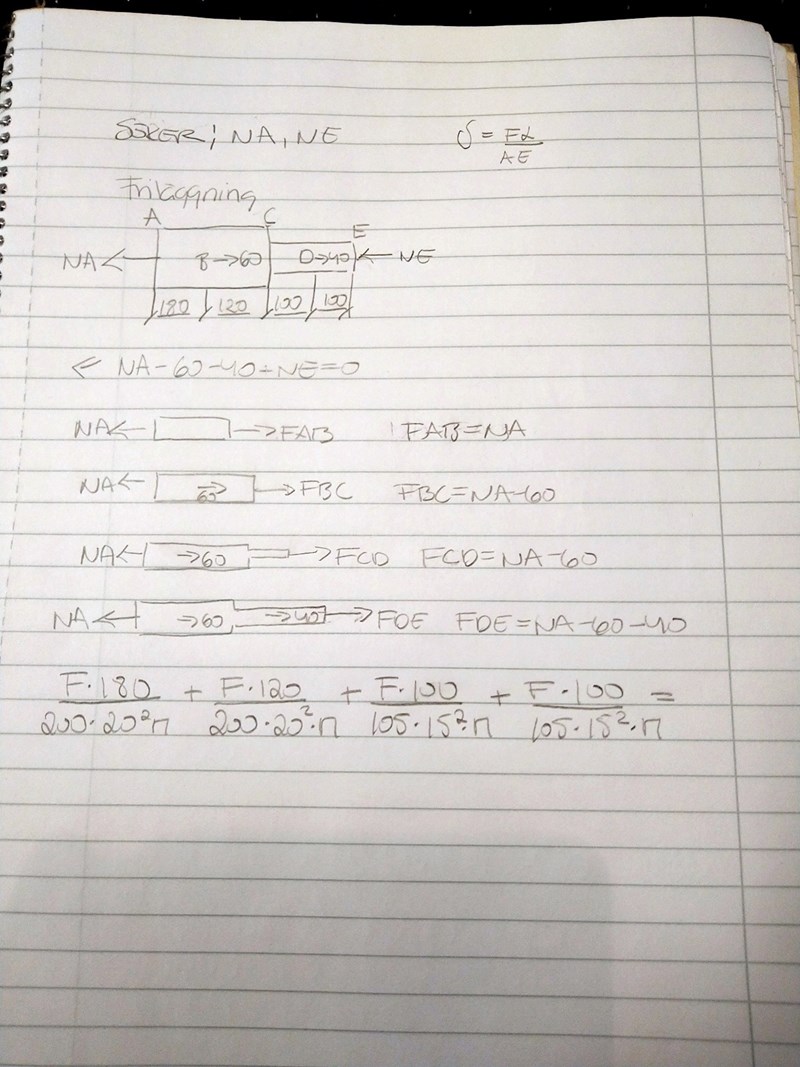 SÖKER; NA, NE
δ = FL/AE
Friläggning
A C E
NA← B→60 D→40 ← NE
180 120 100 100
← NA-60-40+NE=0
NA← →FAB FAB=NA
NA← →60 →FBC FBC=NA-60
NA← →60 →FCD FCD=NA-60
NA← →60 →40 →FDE FDE=NA-60-40
F·180/200·20²π + F·120/200·20²·π + F·100/105·15²·π + F·100/105·15²·π =